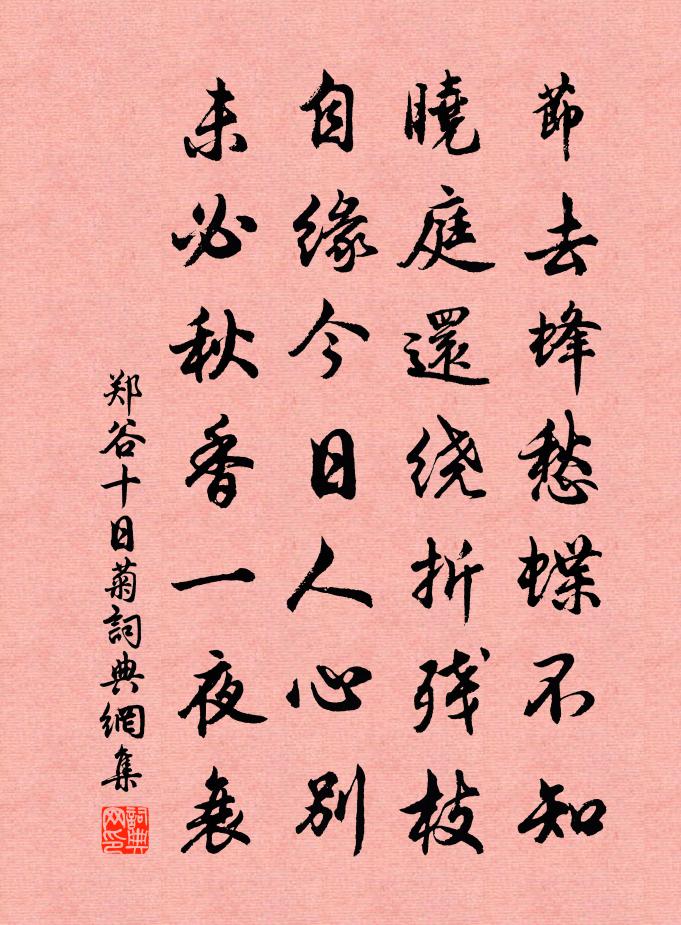 節去蜂愁蝶不知
曉庭還绕折残枝
自缘今日人心别
未必秋香一夜衰
郑谷十日菊詞典網集
詞典网印